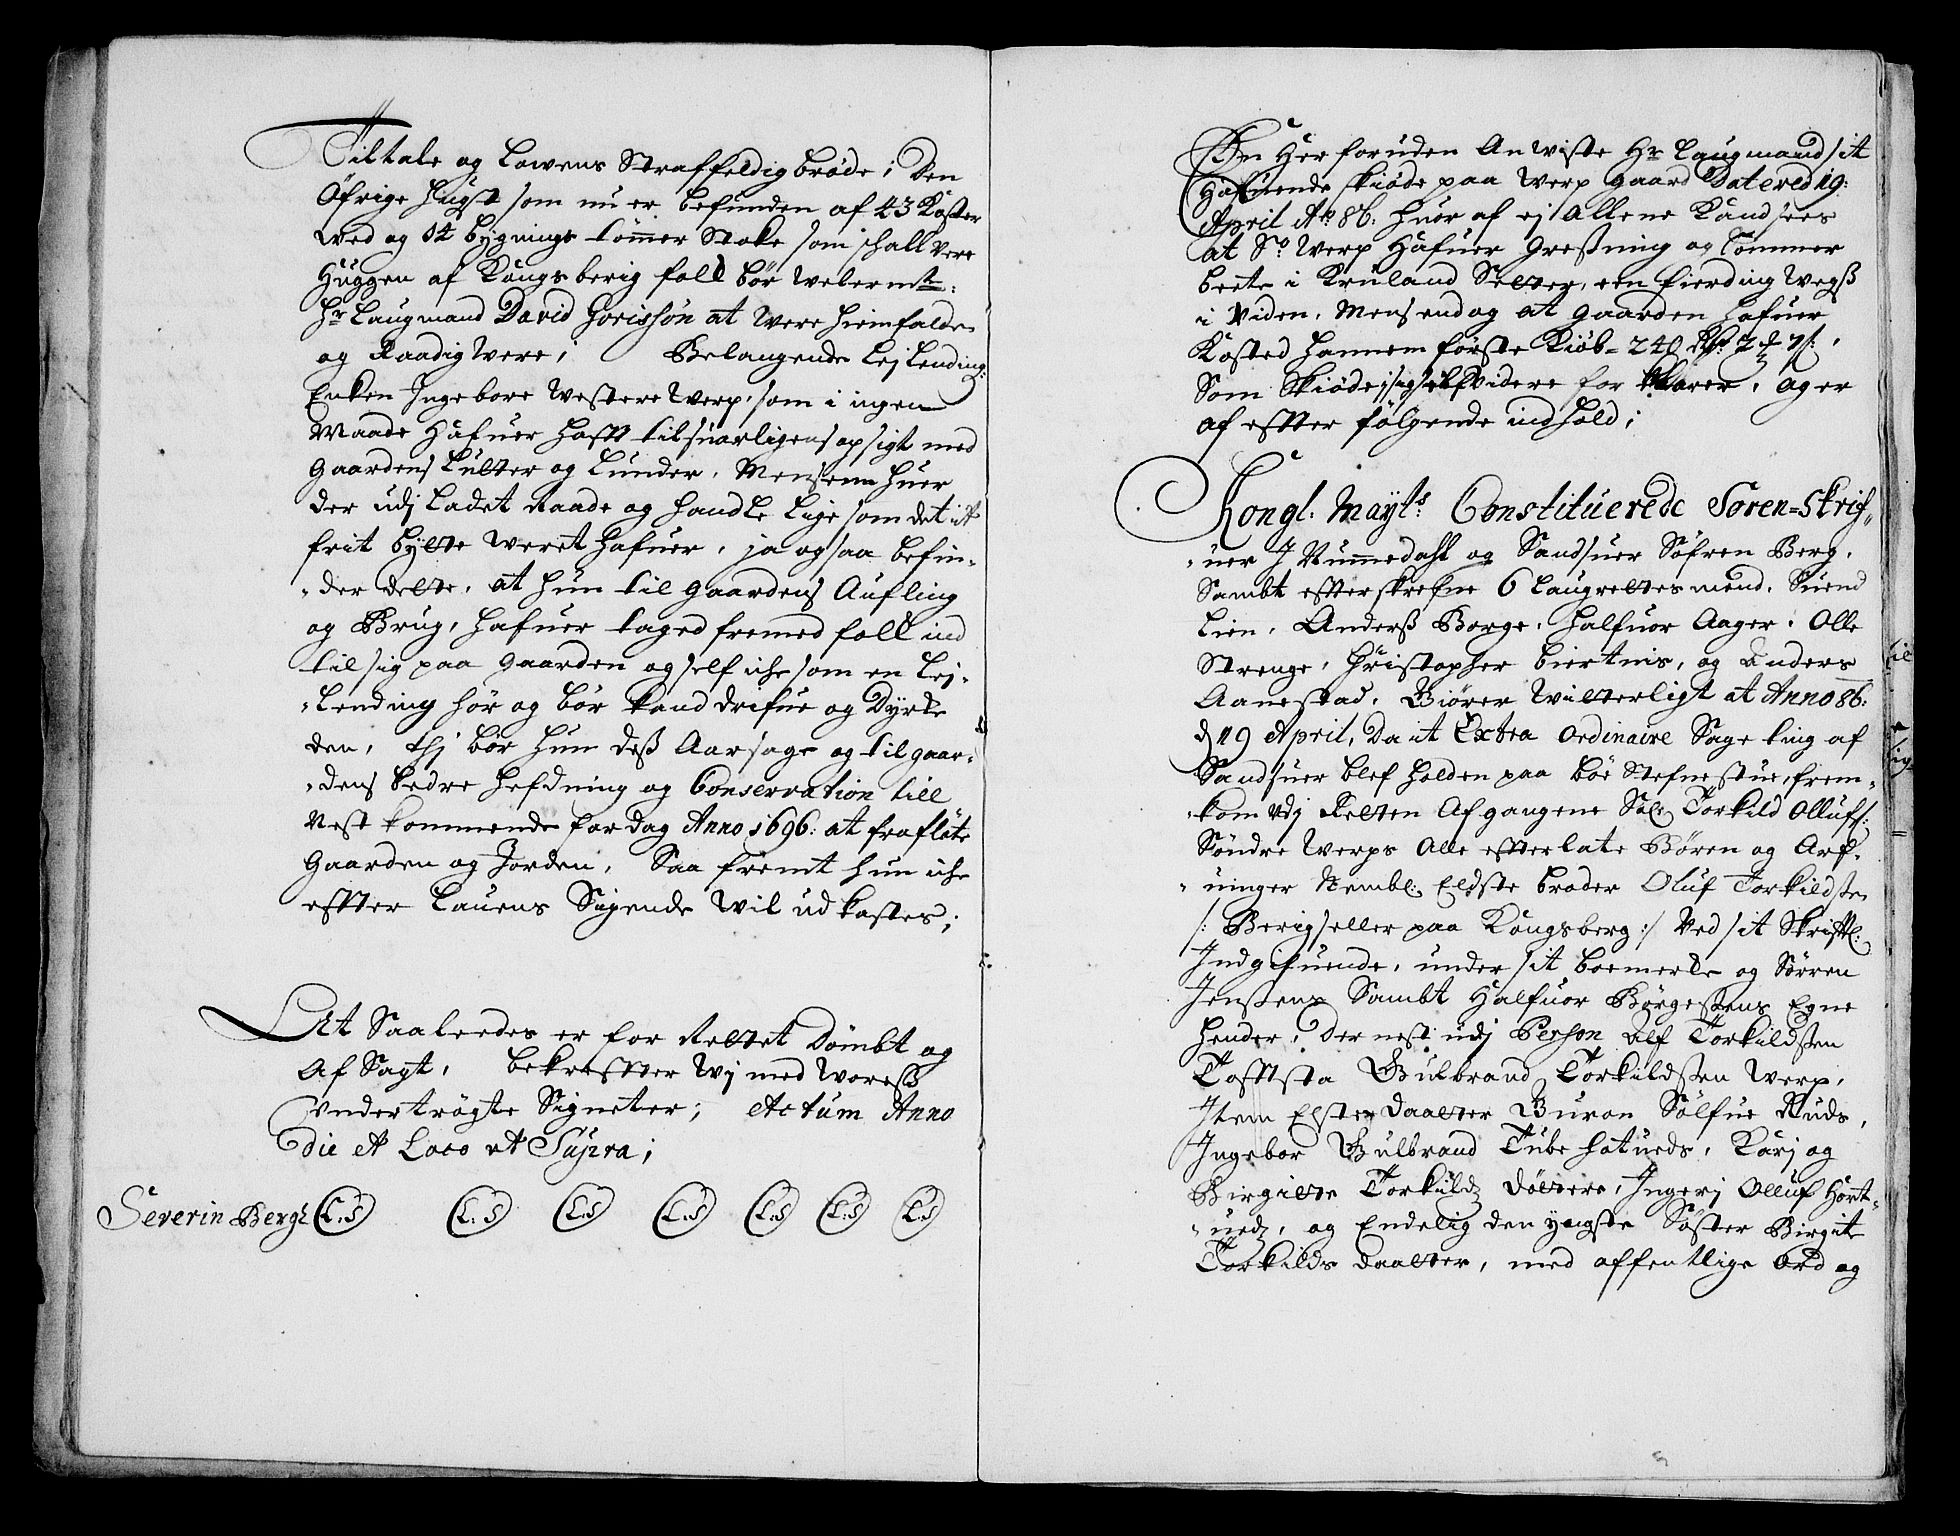 Tiltale og Lowens Straffeldig brøde; Den
Öfrige hugst som nu er befunden af 43 Kaster
Wed og 14 bygnings tømmer Stoke som schall vere
Huggen af Kongsberig folck bør welermte:
Hr Laugmand David Jorisson at were hiemfalden
og Raadig were; Belangende Leylending:
Enken Ingebore Westere Werp, som i ingen
Maade Hafuer hafft tilsuarligens opsigt med
Gaardens Lutter og Lunder, Mens enn huer
der udj ladet Raade og handle lige som det it
frit bytte weret hafuer, ja ogsaa befin-
-der dette, at hun til gaardens Aufling
og Brug, hafuer taged fremed folck ind
til sig paa gaarden og self iche som en Ley-
-lending hør og bør kand drifue og Dyrke
den, thj bør hun dess Aarsage og til gaar-
-dens bedre hefdning og Conservation till
Nest kommende fardag Anno 1696: at frafløte
Gaarden og Jorden, Saa fremt hun iche
effter Lauens Sigende wil udkastes;
At Saaleedes er for Rettet Dömbt og
Af Sagt, bekreffter Wj med Woress
Vndertrögte Signeter; Actum Anno
die et Loco ut Supra;
Severin Bergh L:S L:S L:S L:S L:S L:S L:S
Her foruden Anwiste Hr Laugmand sit
Hafuende skiøde paa Werp gaard Datered 19:
April Ao 86: huor af ej Allene Kand sees
at So Werp Hafuer Gressning og Sommer
beete i Kruland Setter, een fierding wegss
i Viden, Mens endog at gaarden hafuer
Kosted hannem første Kiöb- 240 Rdr 2 7 s:
Som Skiödet sig self videre for klarer, og er
af effter følgende indhold;
Kongl: Mayts Constituerede Soren-Skrif-
-uer J Nummedahl og Sandsuer Söfren Berg,
Sambt effterskrefne 6 Laugrettes mend, Suend
Lien, Anderss Borge, Halfuor Aager, Olle
Strenge, Christopher Biertnis, og Anders
Aanestad, Giörer Witterligt at Anno 86:
d 19 April, Da it Extra Ordinaire Sage ting af
Sandsuer blef holden paa bøe Stefnestue, frem-
-kom vdj Retten Afgangene Sal: Torkild Ollufs:
Søndre Werps Alle effterlate Börn og Arf-
-uinger Nembl: Eldste broder Oluf Torkildsen
/: Berigseller paa Kongsberg :/ Ved sit Skriftl:
Indgifuende, under sit boemerke og Sörren
Jensens Sambt Halfuor Börgesens Egne
hender, der nest udj Person Alf Torkildsen
Tofftsta Gulbrand Torkildsen Werp,
Item Elste Daatter Guron Sölfue Ruds,
Ingebor Gulbrand Tubehatueds, Karj og
Birgitte Torkilds döttere, Ingerj Olluf Hört-
-uedz, og Endelig den yngste Söster Birgite
Torkilds Daatter, med offentlige Ord og